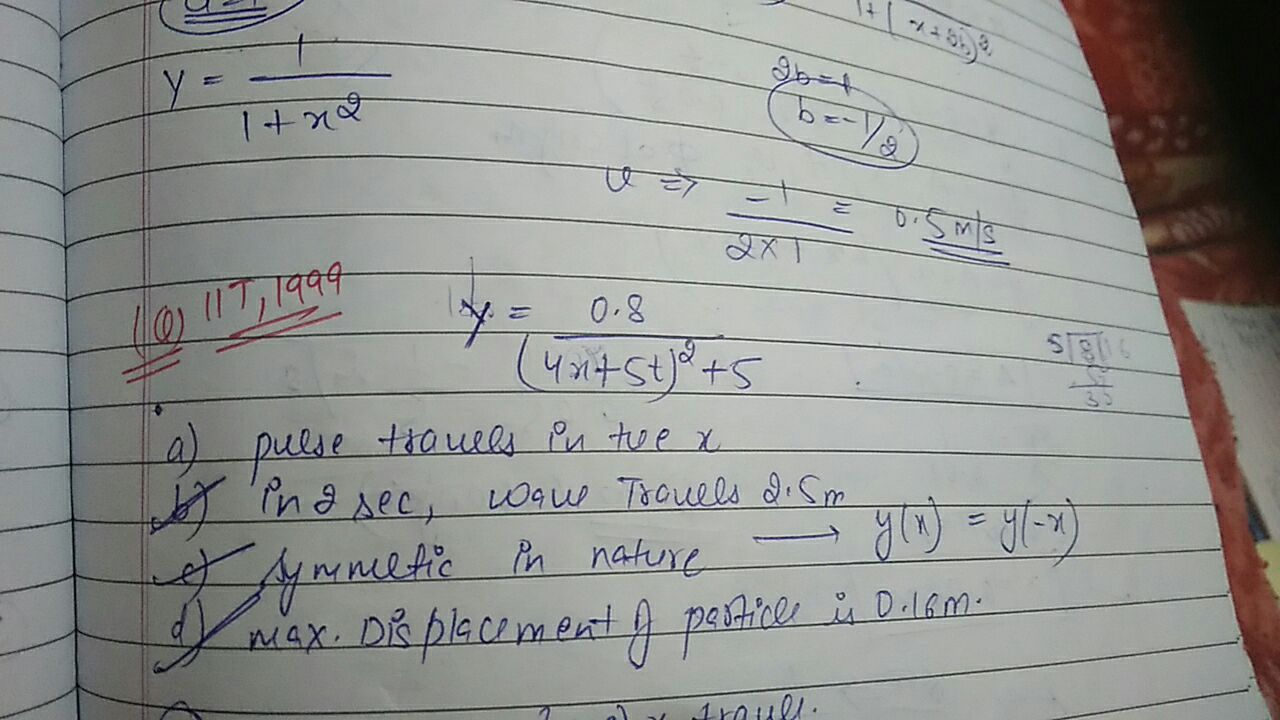 1+(x+2b)2
y = 1/(1+x2)
2b=1
b=-1/2
v => -1/(2x1) = 0.5 m/s
(Q) IIT, 1999
y = 0.8/((4x+5t)2+5)
a) pulse travels in +ve x
b) in 2 sec, wave Travels 2.5m
c) symmetic in nature → y(x) = y(-x)
d) max. Displacement of particle is 0.16m.
x travel.